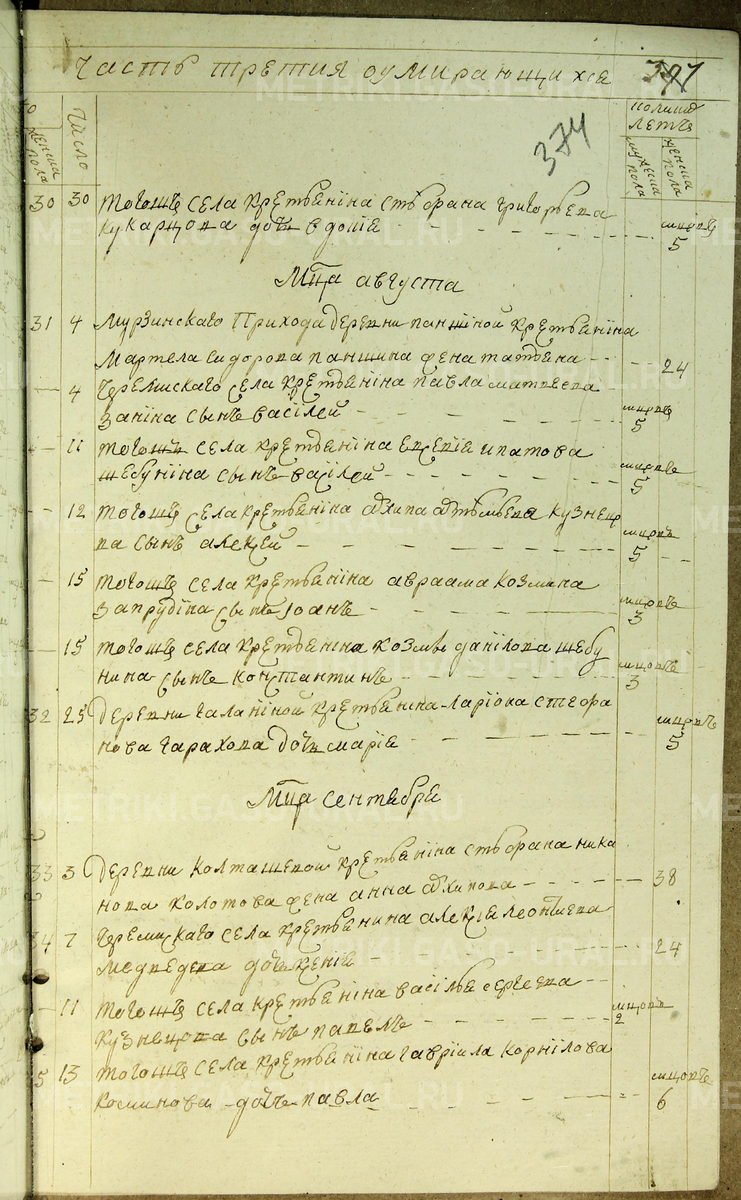 Часть третия оумирающихся 397
374
число
женска пола
колико летъ
мужеска пола
женска пола
30 30 тогожъ села крестьянина Стефана Григорьева
Кукарцова дочь Евдокия мцовъ 5
Мца августа
31 4 Мурзинскаго прихода деревни Паншиной крестьянина
Мартела Сидорова Паншина жена Татьяна 24
4 Черемискаго села крестьянина Павла Матвеева
Заніна сынъ Василей мцовъ 5
11 тогожъ села крестьянина Ипатова
Шебуніна сынъ Василей мцовъ 5
12 тогожъ села крестьяніна Архипа Кузнец
ва сынъ Алексей мцовъ 5
15 тогожъ села крестьяніна Авраама Козмина
Запрудіна сынъ Іоанъ мцовъ 3
15 тогожъ села крестьяніна Козмы Данілова Шебу
нина сынъ Констянтинъ мцовъ 3
32 25 деревни Галаніной крестьяніна Ларіона Стефа
нова Тарахова дочь Марія мцовъ 5
Мца сентября
33 3 деревни Колташевой крестьяніна Стефана Ника
нова Колотова жена Анна Архипова 38
34 7 Черемискаго села крестьянина Алексія Леонтьева
Медведева дочь Ксенія 24
11 тогожъ села крестьяніна Васілья Сергеева
Кузнецова сынъ Павелъ мцовъ 2
5 13 тогожъ села крестьяніна Гавріила Корнілова
Косминова дочь Павла мцовъ 6